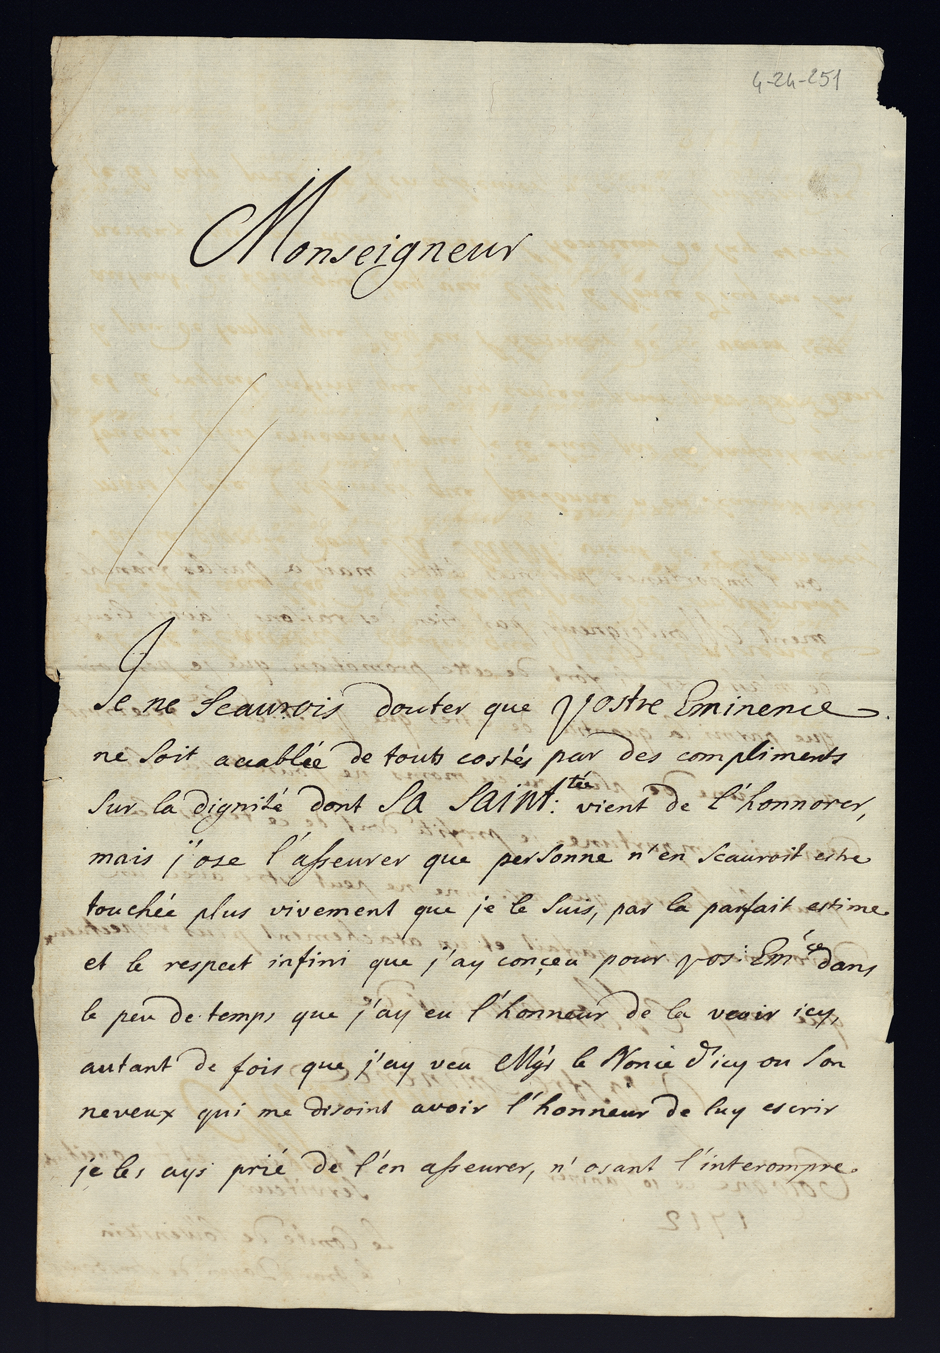 4-24-251
Monseigneur
Je ne scaurois douter que Vostre Eminence
ne soit accablée de touts costés par des compliments
sur la dignité dont SA SAINT:tée vient de l'honnorer,
mais j'ose l'asseurer que personne n'en scauroit estre
touchée plus vivement que je le suis, par la parfait estime
et le respect infini que j'ay conçeu pour Vos: Em:ce dans
le peu de temps que j'ay eu l'honneur de la veoir icy,
autant de fois que j'ay veu Mgr le Nonce d'icy ou son
neveux qui me disoint avoir l'honneur de luy escrir
je les ays prié de l'en asseurer, n'osant l'interompre